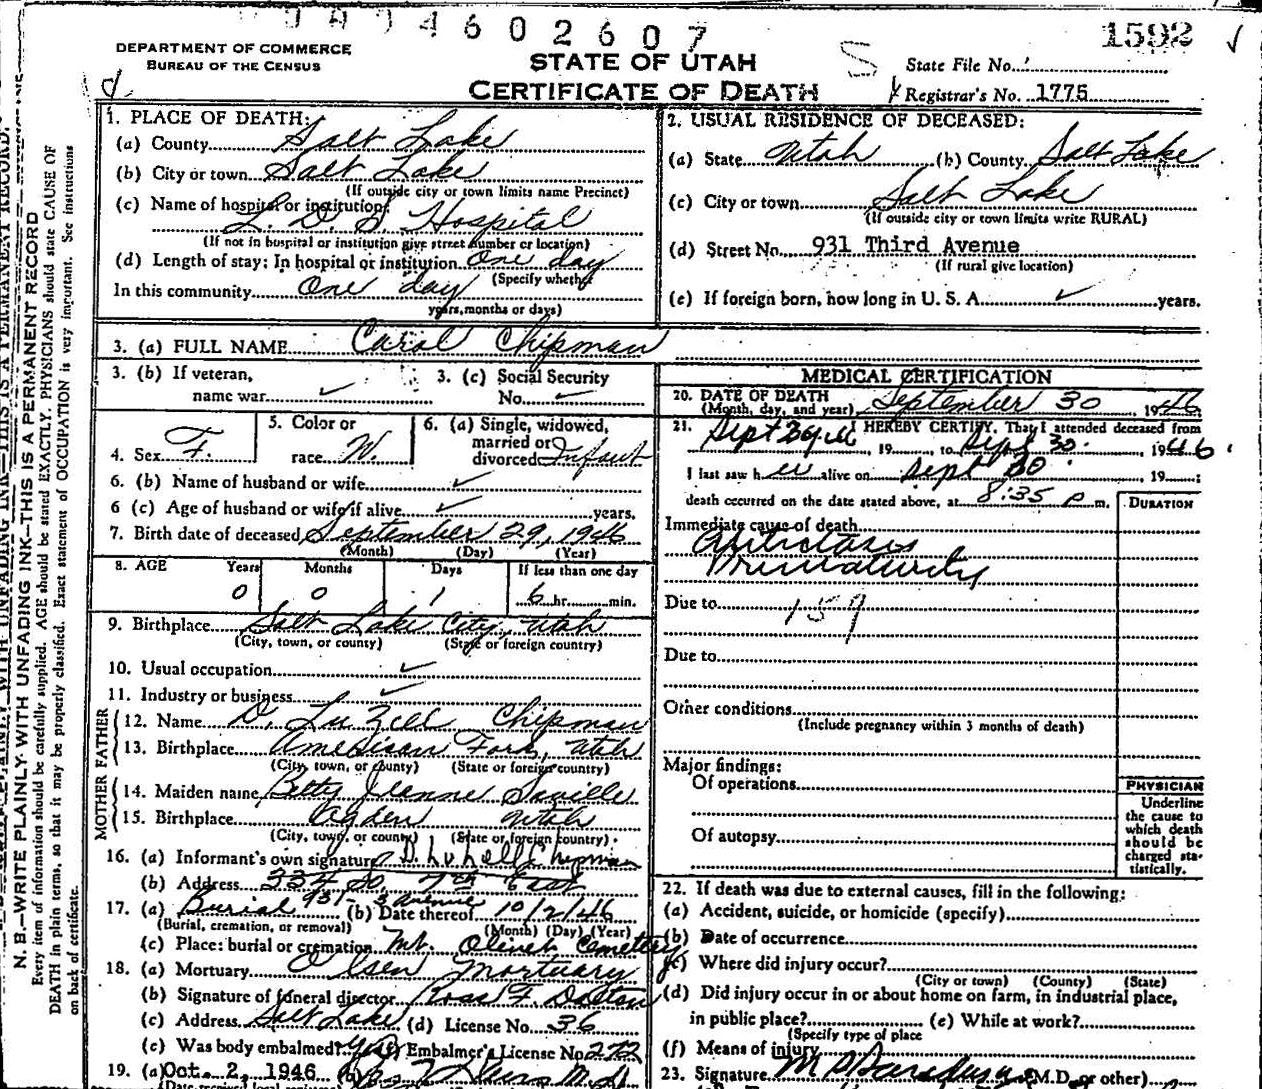 4602607
1592
DEPARTMENT OF COMMERCE
BUREAU OF THE CENSUS
STATE OF UTAH
CERTIFICATE OF DEATH
State File No.
Registrar's No. 1775
1. PLACE OF DEATH:
(a) County Salt Lake
(b) City or town Salt Lake
(If outside city or town limits name Precinct)
(c) Name of hospital or institution:
L. D. S. Hospital
(If not in hospital or institution give street number or location)
(d) Length of stay: In hospital or institution One day
(Specify whether
In this community One day
years, months or days)
2. USUAL RESIDENCE OF DECEASED:
(a) State Utah (b) County Salt Lake
(c) City or town Salt Lake
(If outside city or town limits write RURAL)
(d) Street No. 931 Third Avenue
(If rural give location)
(e) If foreign born, how long in U. S. A. ✓ years.
3. (a) FULL NAME Carol Chipman
3. (b) If veteran,
name war ✓
3. (c) Social Security
No. ✓
4. Sex F.
5. Color or
race W.
6. (a) Single, widowed,
married or
divorced Infant
6. (b) Name of husband or wife ✓
6 (c) Age of husband or wife if alive ✓ years.
7. Birth date of deceased September 29, 1946
(Month) (Day) (Year)
8. AGE Years Months Days If less than one day
0 0 1 6 hr. min.
9. Birthplace Salt Lake City, Utah
(City, town, or county) (State or foreign country)
10. Usual occupation ✓
11. Industry or business ✓
FATHER
12. Name D. LuZell Chipman
13. Birthplace American Fork, Utah
(City, town, or county) (State or foreign country)
MOTHER
14. Maiden name Betty Jeanne Saville
15. Birthplace Ogden Utah
(City, town, or county) (State or foreign country)
16. (a) Informant's own signature D. LuZell Chipman
(b) Address 334 So. 7th East
931 - 3 Avenue
17. (a) Burial (b) Date thereof 10/2/46
(Burial, cremation, or removal) (Month) (Day) (Year)
(c) Place: burial or cremation Mt. Olivet Cemetery
18. (a) Mortuary Olsen Mortuary
(b) Signature of funeral director Ross F Dalton
(c) Address Salt Lake (d) License No. 36
(e) Was body embalmed? Embalmer's License No. 272
19. (a) Oct. 2, 1946 (b)
(Date received local
MEDICAL CERTIFICATION
20. DATE OF DEATH
(Month, day, and year) September 30, 1946
21. I HEREBY CERTIFY, That I attended deceased from
Sept , 19 , to Sept 30 , 1946
I last saw her alive on Sept 30 19 ;
death occurred on the date stated above, at 8:35 p m.
DURATION
Immediate cause of death
Prematurity
Due to 159
Due to
Other conditions
(Include pregnancy within 3 months of death)
Major findings:
Of operations
Of autopsy
PHYSICIAN
Underline
the cause to
which death
should be
charged sta-
tistically.
22. If death was due to external causes, fill in the following:
(a) Accident, suicide, or homicide (specify)
(b) Date of occurrence
(c) Where did injury occur?
(City or town) (County) (State)
(d) Did injury occur in or about home on farm, in industrial place,
in public place? (e) While at work?
(Specify type of place
(f) Means of injury
23. Signature (M.D. or other)
N. B.—WRITE PLAINLY WITH UNFADING INK—THIS IS A PERMANENT RECORD
Every item of information should be carefully supplied. AGE should be stated EXACTLY. PHYSICIANS should state CAUSE OF
DEATH in plain terms, so that it may be properly classified. Exact statement of OCCUPATION is very important. See instructions
on back of certificate.